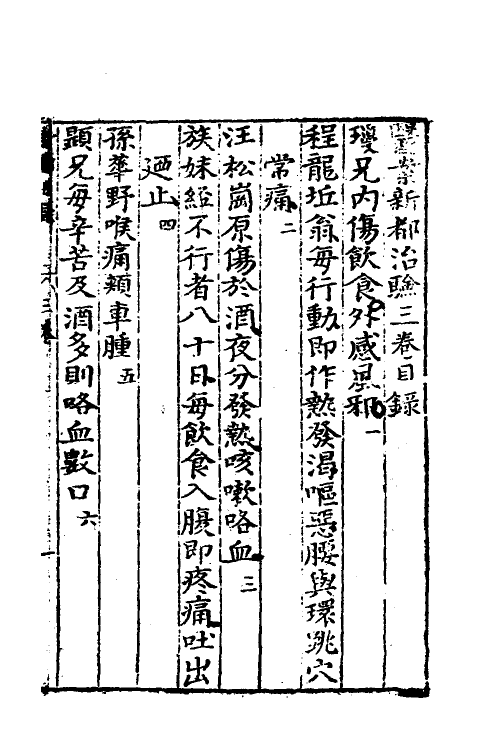 醫案新都治驗三卷目錄
璦兄內傷飲食外感風邪 一
程龍坵翁每行動即作熱發渴嘔惡腰與環跳穴
常痛 二
汪松崗原傷於酒夜分發熱咳嗽咯血 三
族妹經不行者八十日每飲食入腹即疼痛吐出
廼止 四
孫華野喉痛頰車腫 五
顯兄每辛苦及酒多則咯血數口 六